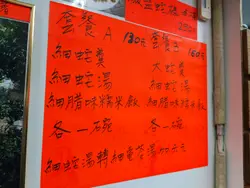 套餐A 130元 套餐B 160元
細蛇羹 大蛇羹
細蛇湯 細蛇湯
細腊味糯米飯 細腊味糯米飯
各一碗 各一碗
細蛇湯轉細電苓湯加